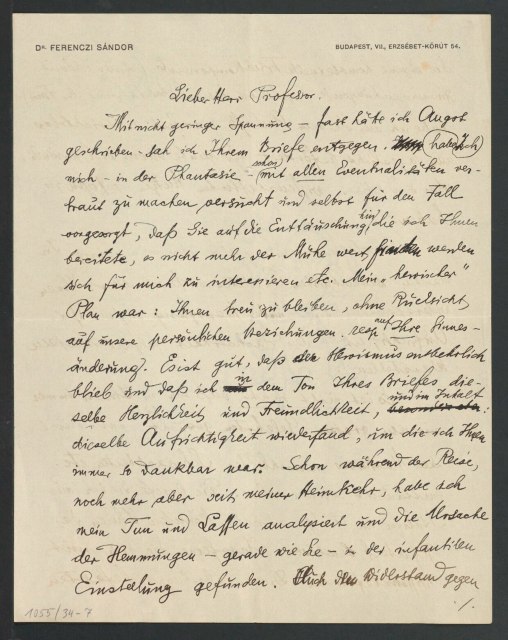 Dr. FERENCZI SÁNDOR
BUDAPEST, VII., ERZSÉBET-KÖRÚT 54.
Lieber Herr Professor.
Mit nicht geringer Spannung – fast hätte ich Angst
geschrieben – sah ich Ihrem Briefe entgegen. habe ich
mich – in der Phantasie – schon mit allen Eventualitäten ver-
traut zu machen versucht und selbst für den Fall
vorgesorgt, daß Sie auf die Enttäuschung hin, die ich Ihnen
bereitete, es nicht mehr der Mühe wert finden werden
sich für mich zu interessieren etc. Mein „heroischer"
Plan war: Ihnen treu zu bleiben, ohne Rücksicht
auf unsere persönlichen Beziehungen. resp. auf Ihre Sinnes-
änderung. Es ist gut, daß der Heroismus entbehrlich
blieb und daß ich in dem Ton Ihres Briefes die-
selbe Herzlichkeit und Freundlichkeit, und im Inhalt
dieselbe Aufrichtigkeit wiederfand, um die ich Ihnen
immer so dankbar war. Schon während der Reise,
noch mehr aber seit meiner Heimkehr, habe ich
mein Tun und Lassen analysiert und die Ursache
der Hemmungen – gerade wie Sie – in der infantilen
Einstellung gefunden. Auch den Widerstand gegen
./.
1055/34-7